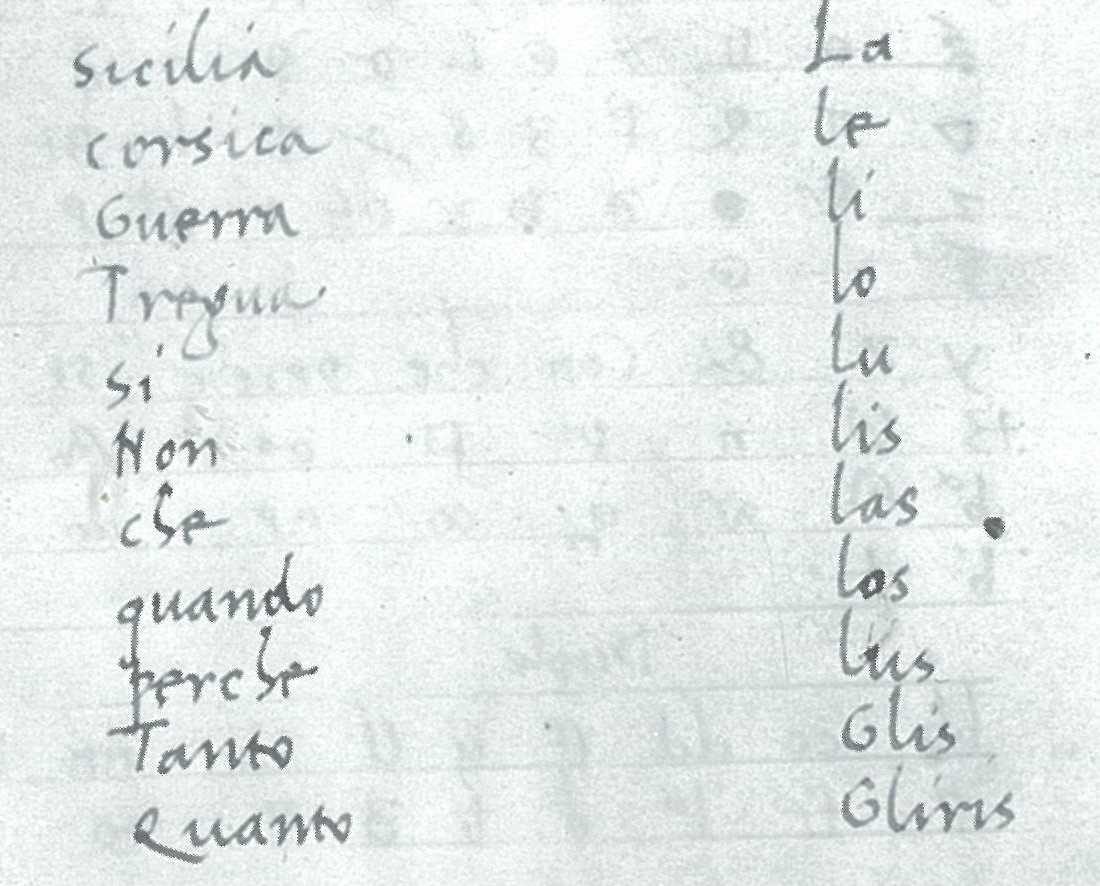 Sicilia
Corsica
Guerra
Tregua
Si
Non
che
quando
perche
Tanto
Quanto
La
le
li
lo
lu
lis
las
los
lus
Glis
Gliris